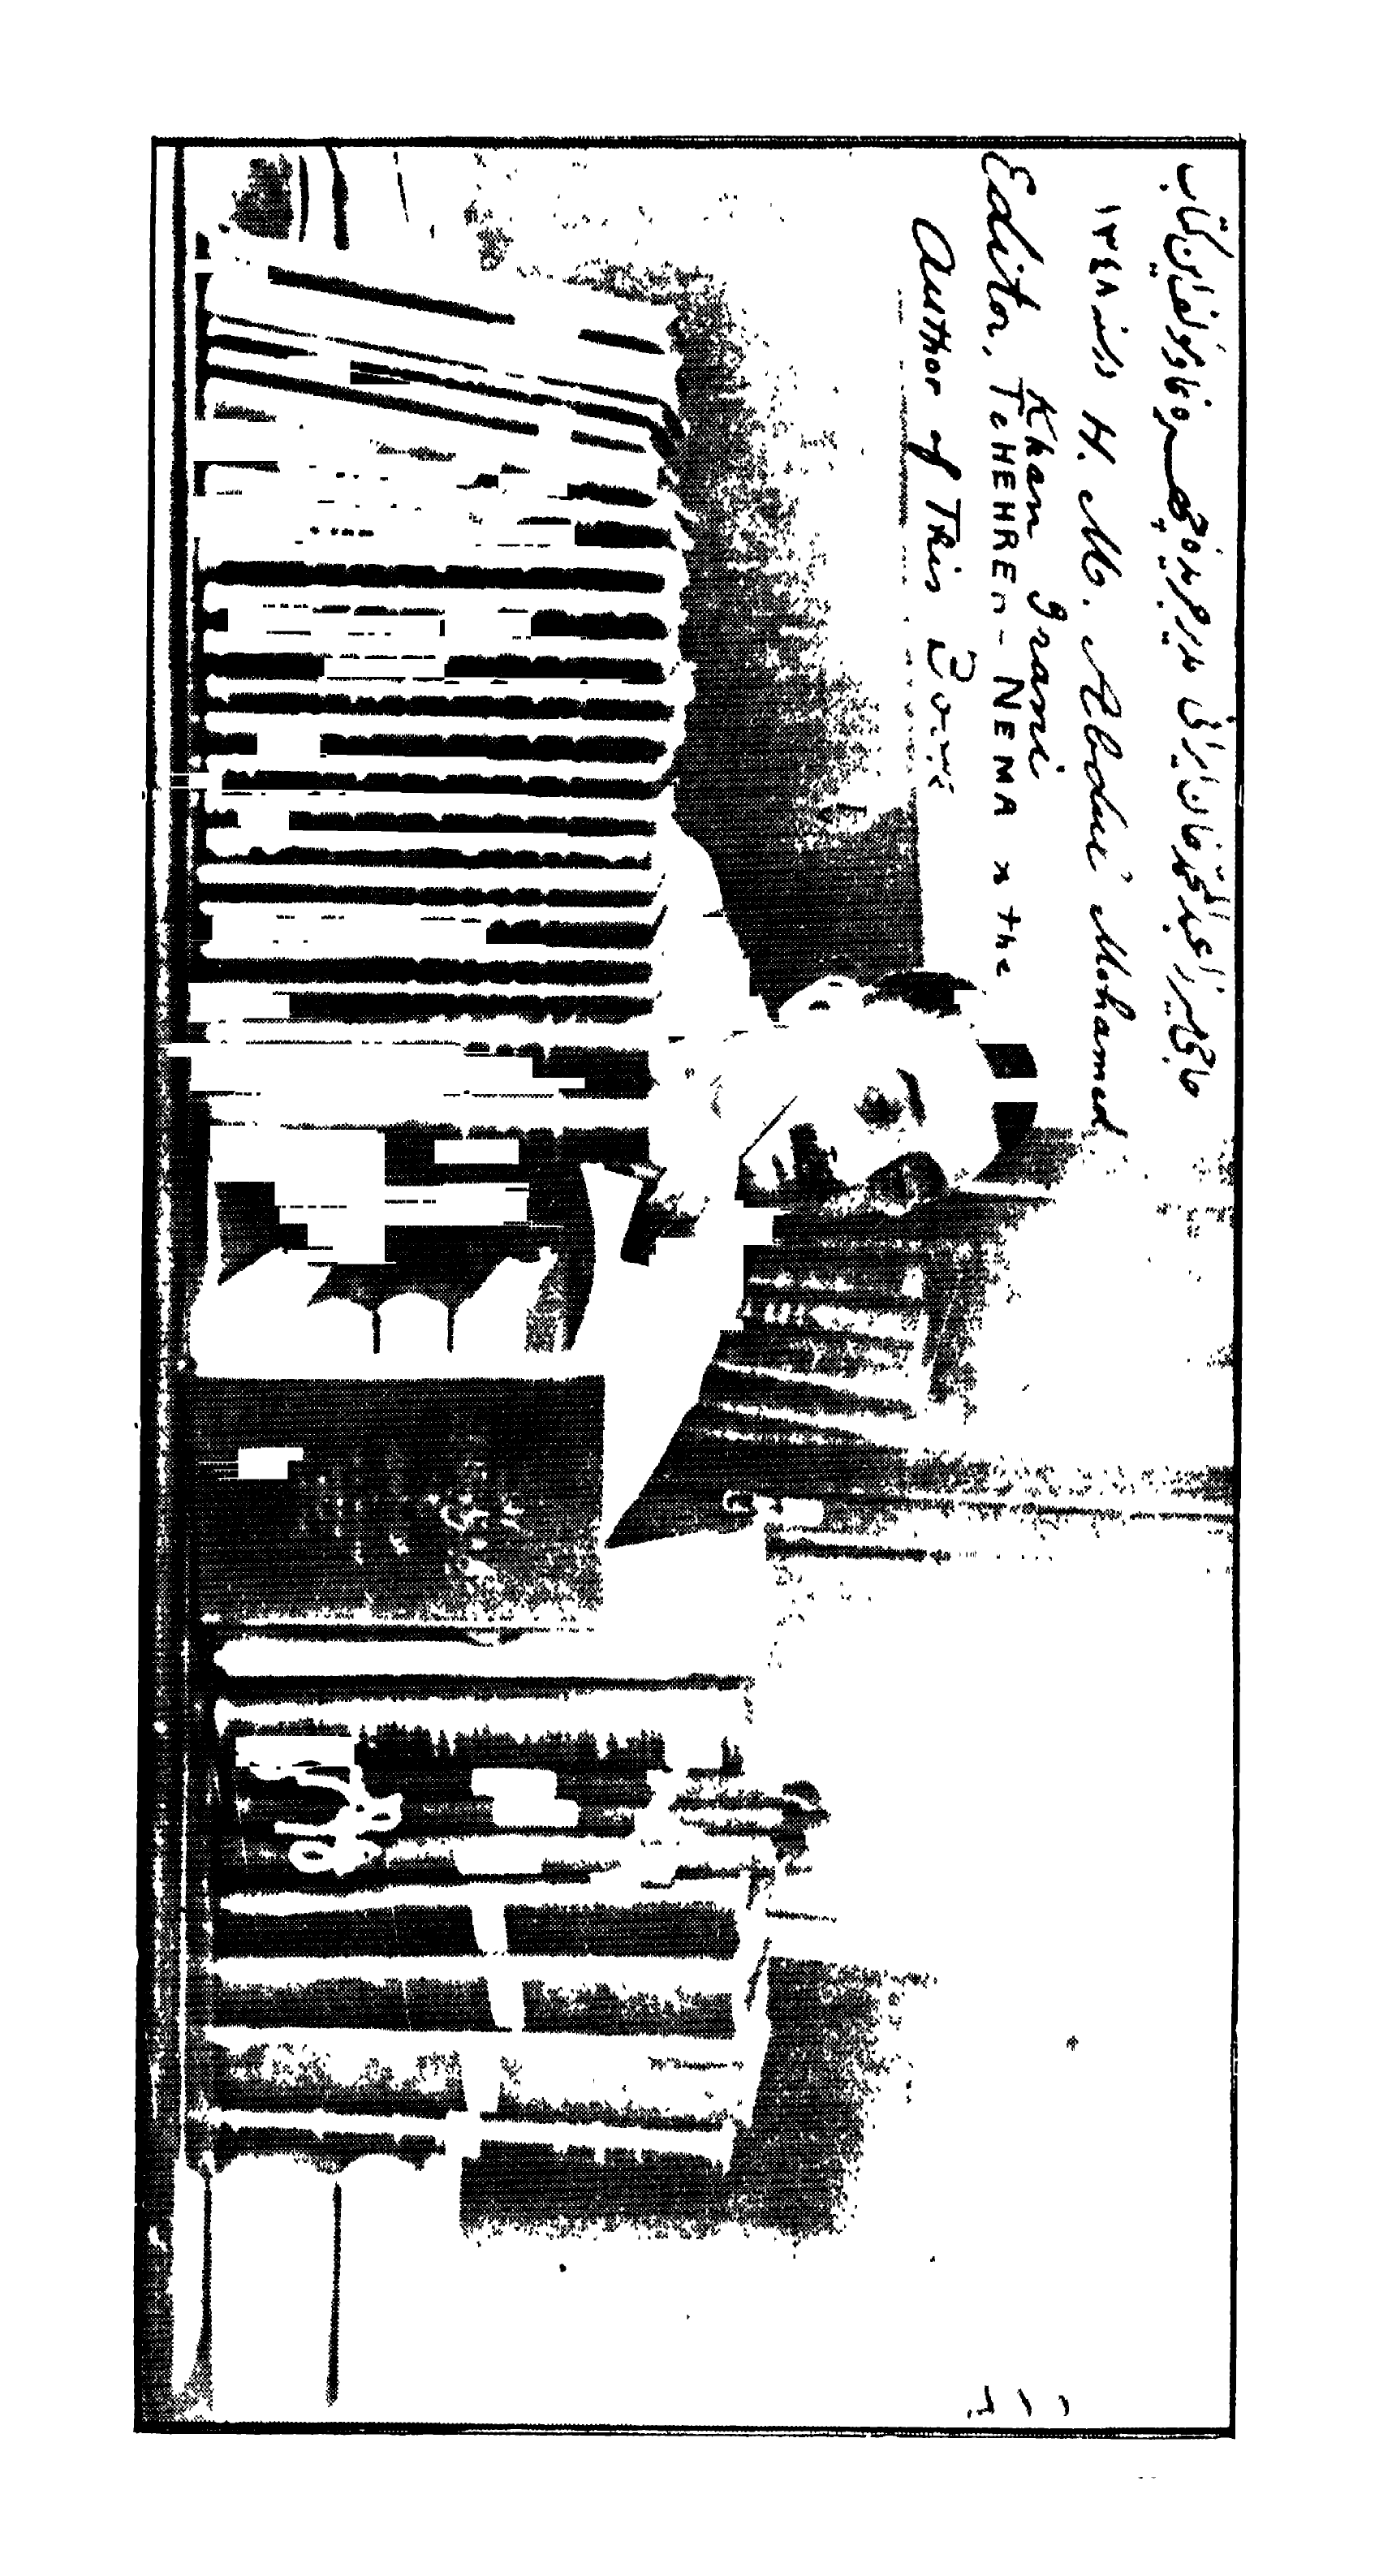 حاجی میرزا عبدالمحمد خان ایرانی مدیر جریده چهره نما و مؤلف این کتاب
سنه ١٣٤٨
H. M. Abdul Mohamed
Khan Irani
Editor, TCHEHRE - NEMA & the
Author of This Book